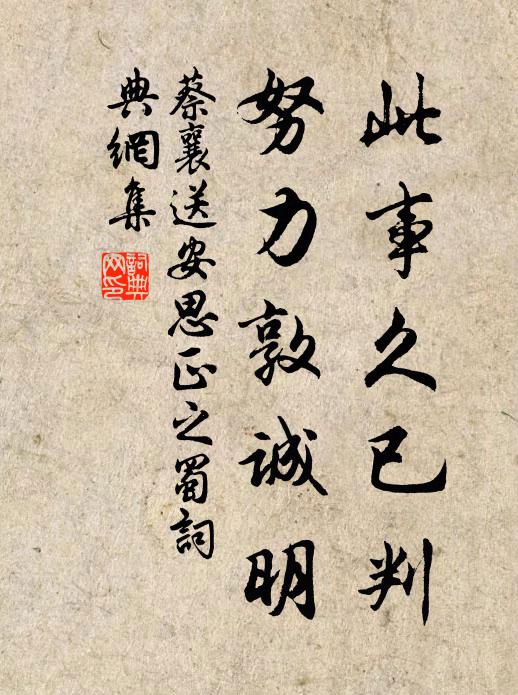 此事久已判
努力敦誠明
蔡襄送安思正之蜀詞
典網集
詞典網印